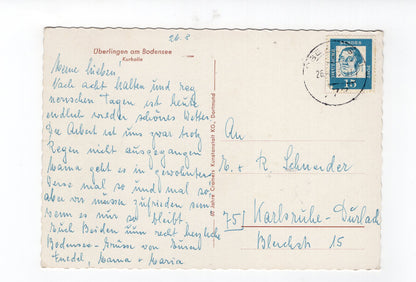 26.8
Überlingen am Bodensee
Kurhalle
Meine Lieben
Nach acht kalten und reg
nerischen Tagen ist heute
endlich wieder schönes Wetter.
Die Arbeit ist uns zwar trotz
Regen nicht ausgegangen
Mama geht es in gewohnter
Weise mal so und mal so,
aber wir müssen zufrieden sein
wenn es nur so bleibt.
Euch Beiden nun recht herzliche
Bodensee-Grüsse von Euren
Mama + Maria
60 Jahre Cramers Kunstanstalt KG., Dortmund
DEUTSCHE
BUNDESPOST
15
26.
An
H. + R. Schneider
75/ Karlsruhe-Durlach
Bleichstr 15